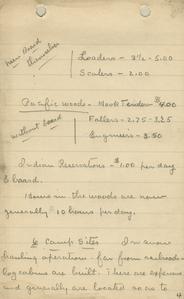 men board
themselves
Loaders - 3½ - 5.00
Scalers - 2.00
Pacific woods - Hook Tender $4.00
without board
Fallers - 2.75 - 3.25
Engineers - 3.50
Indian Reservations - $1.00 per day
& board.
Hours in the woods are now
generally 10 hours per day.
Camp Sites In snow
hauling operations - far from railroads -
log cabins are built. These are expensive
and generally are located so as to